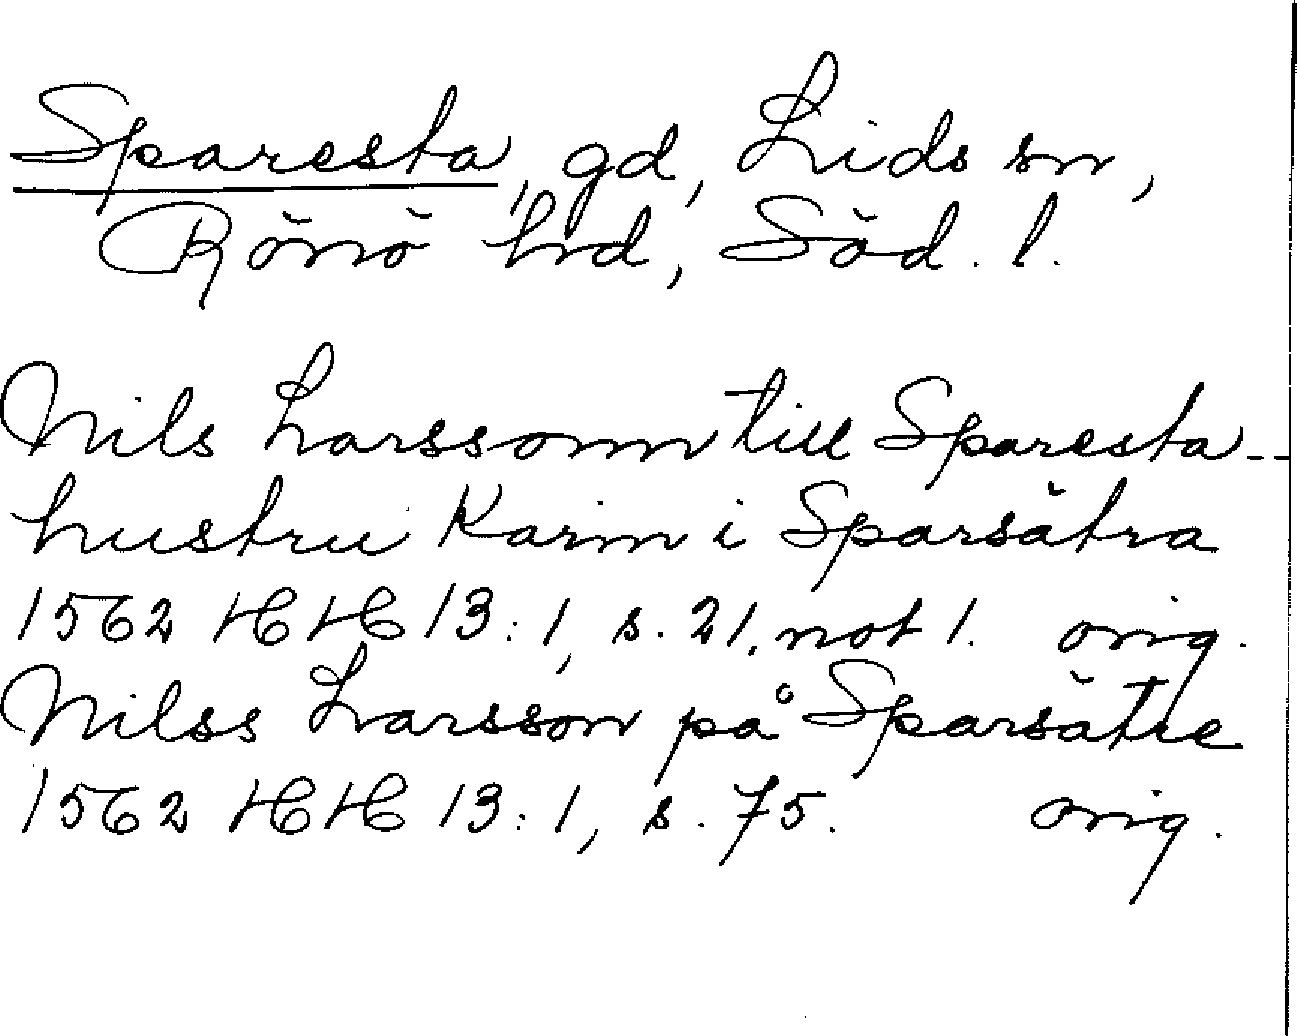 Sparesta, gd, Lids sn,
Rönö hrd, Söd. l.
Nils Larssonn till Sparesta --
hustru Karin i Sparsätra
1562 HH 13:1, s. 21, not 1. orig.
Nilss Larsson på Sparsätre
1562 HH 13:1, s. 75. orig.